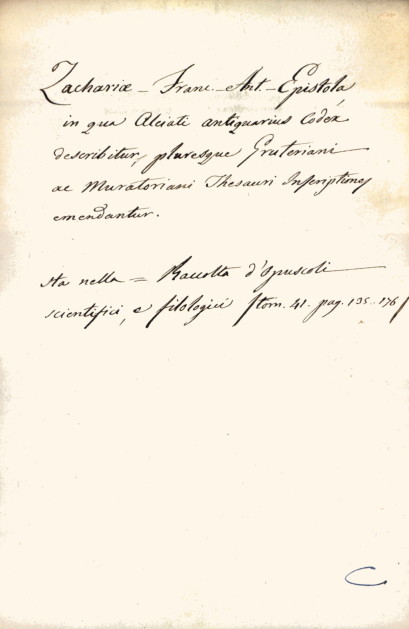 Zachariæ - Franc. - Ant. - Epistola
in qua Alciati antiquarius Codex
describitur, pluresque Gruteriani
ac Muratoriani Thesauri Inscriptiones
emendantur.
sta nella = Raccolta d'Opuscoli
scientifici, e filologici tom. 41. pag. 135. 176
C